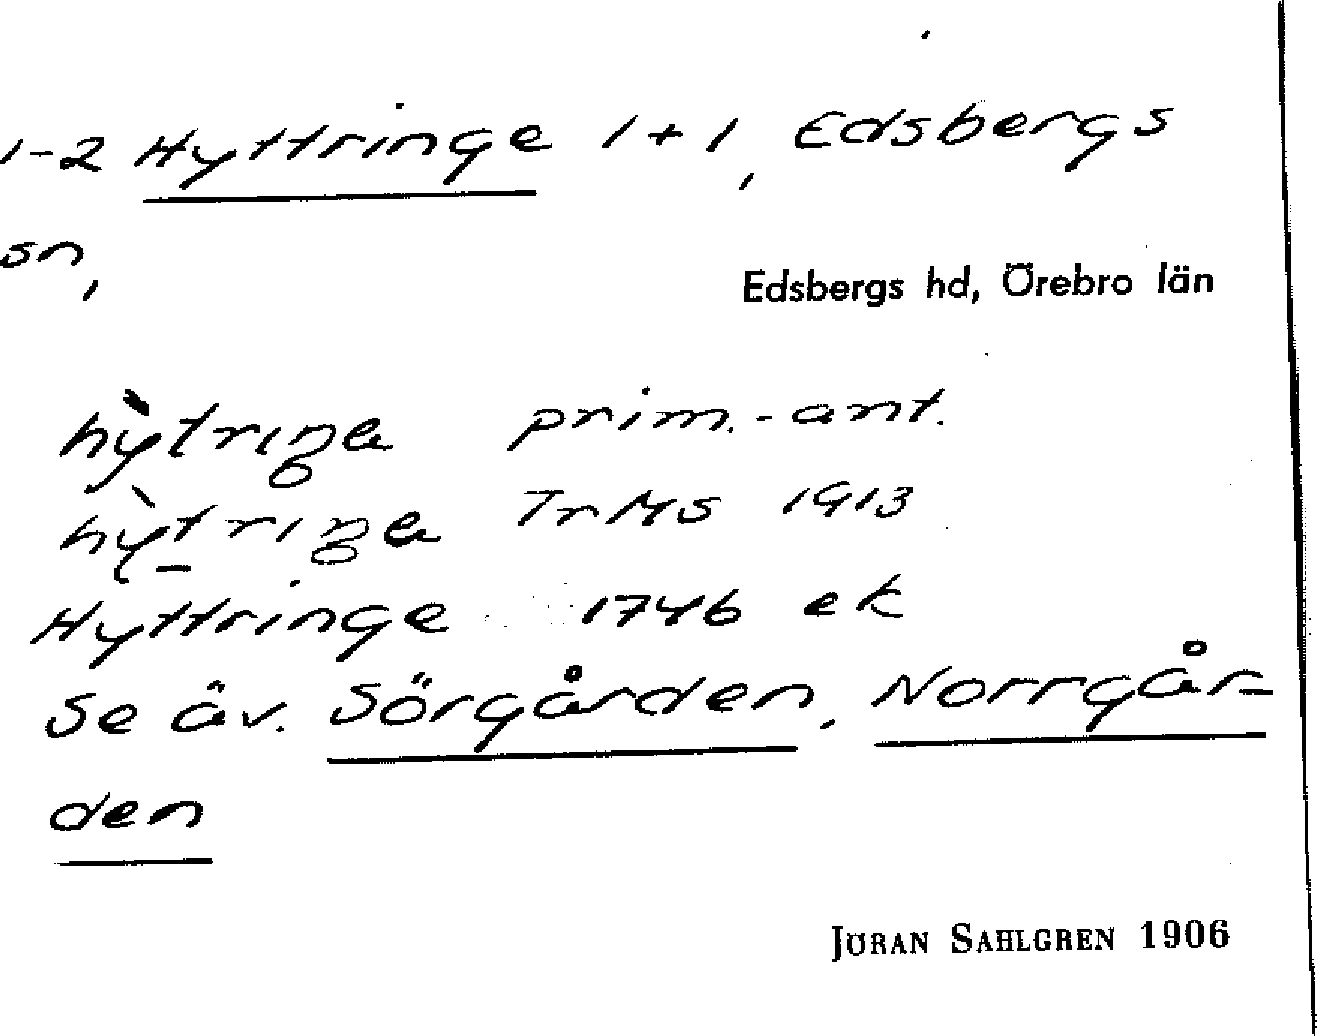 1-2 Hyttringe 1+1, Edsbergs
sn,
Edsbergs hd, Örebro län
hỳtriŋa prim.-ant.
hỳtriŋa TrMs 1913
Hyttringe 1746 ek
Se äv. Sörgården, Norrgår-
den
Jöran Sahlgren 1906